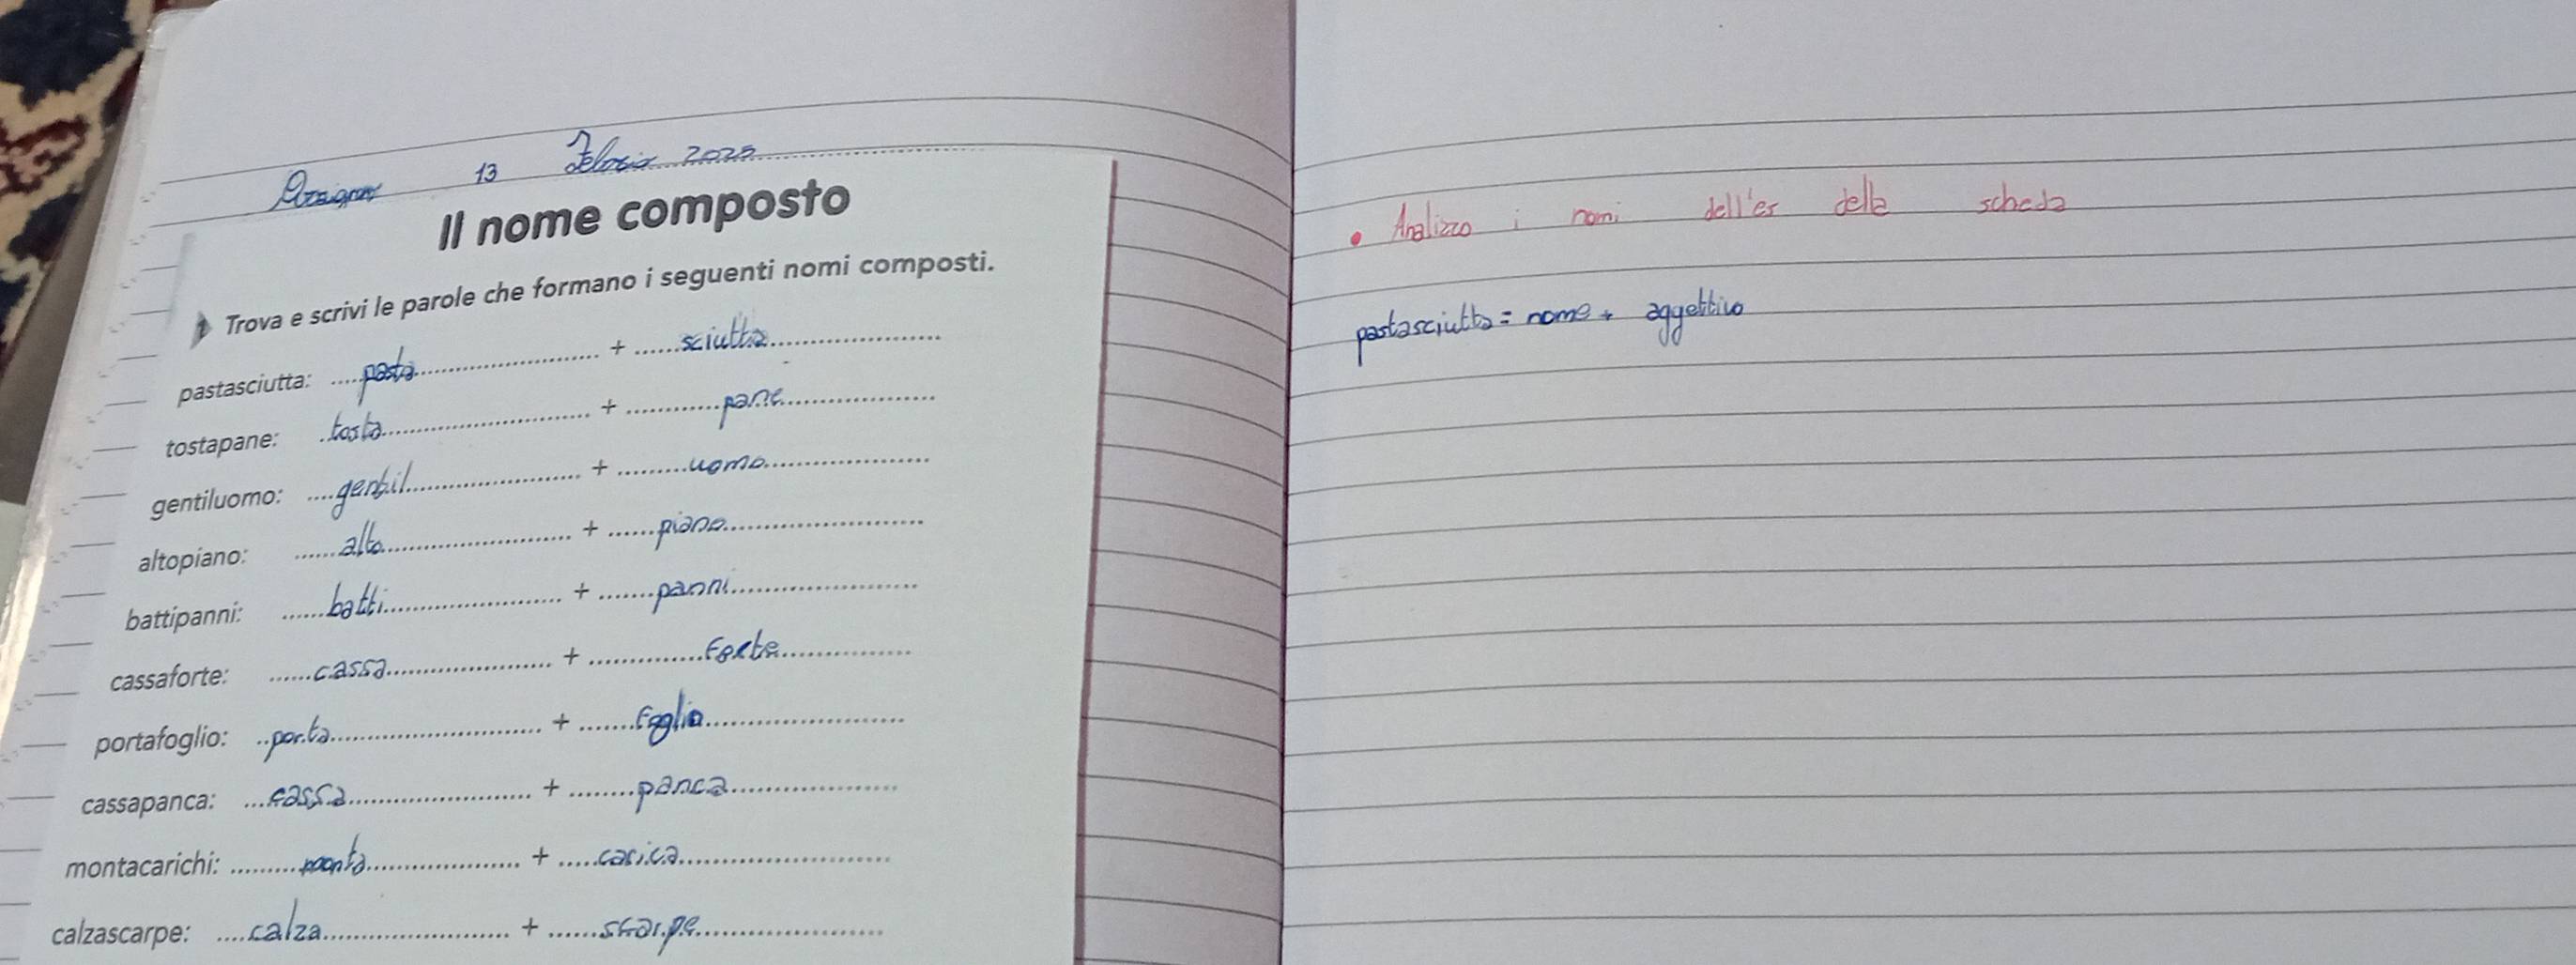 13 Febbraio 2025
Il nome composto
1 Trova e scrivi le parole che formano i seguenti nomi composti.
pastasciutta: pasta + sciutta
tostapane: tosta + pane
gentiluomo: gentil + uomo
altopiano: alto + piano
battipanni: batti + panni
cassaforte: cassa + forte
portafoglio: porta + foglio
cassapanca: cassa + panca
montacarichi: monta + carica
calzascarpe: calza + scarpe
• Analizzo i nomi dell'es della scheda
pastasciutta = nome + aggettivo